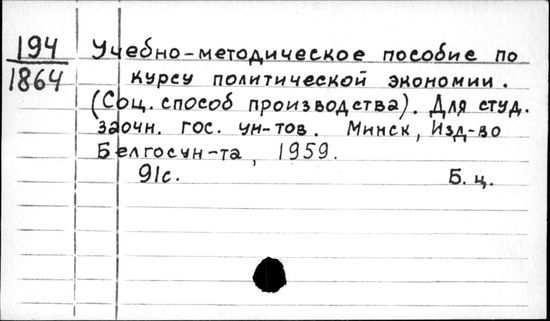 194
1864
Учебно-методическое пособие по
курсу политической экономии.
(Соц. способ производства). Для студ.
заочн. гос. ун-тов. Минск, Изд-во
Белгосун-та, 1959.
91с. Б. ц.